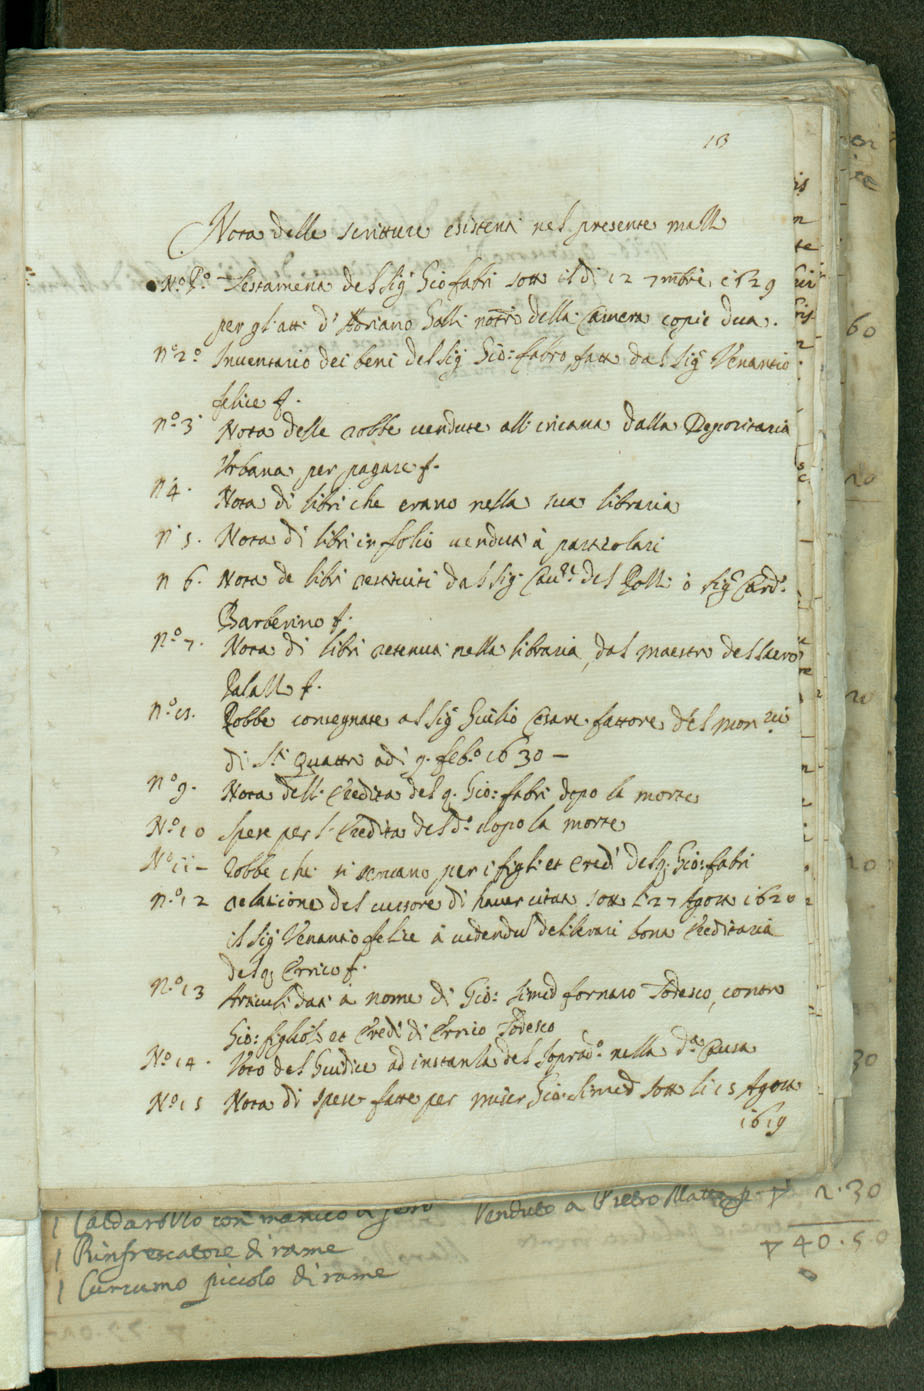 13
Nota delle scritture esistenti nel presente mazzo
N.º P.º Testamento del Sig.r Gio fabri sotto il di 12 7mbre 1629
per gl'atti d'Adriano Galli notro della Camera copie dua.
nº 2º Inventario dei beni del Sig.r Gio: fabro, fatto dal Sig.r Venantio
felice f.
nº 3 Nota delle robbe vendute all'incanto dalla Depositaria
Urbana per pagare f.
n 4. Nota di libri che erano nella sua libraria
n 5. Nota di libri in folio venduti à particolari
n 6. Nota de libri restituiti dal Sig. Cav.re del Pozzo ò Sig.r Card.e
Barberino f.
n.º 7. Nota di libri retenuti nella libraria, dal maestro del sacro
Palazzo f.
n.º 8. Robbe consegnate al Sig.r Giulio Cesare fattore del mon.rio
di S.ti Quattro adi 9. feb.º 1630 –
n.º 9. Nota dell'heredita del q. Gio: fabri dopo la morte
N.º 10 Spese per l'heredita del d.º dopo la morte
N.º 11 – Robbe che si servano per i figli et heredi del q. Gio: fabri
n.º 12 relatione del cursore di haver citato sotto li 27 Agosto 1620
il Sig.r Venantio felice à videndum deliberari bona hereditaria
del q. Errico f.
n.º 13 Articuli dati à nome di Gio: Simed fornaro Todesco, contro
Gio: figliolo et heredi di Errico Todesco
N.º 14. Voto del Giudice ad instanza del soprad.º nella d.ª Causa
N.º 15 Nota di spese fatte per miser Gio: Simed sotto li 15 Agosto
1619
1 Caldarozzo con manico di ferro Venduto a Pietro 2.30
1 Rinfrescatore di rame 40.50
1 Cuccumo piccolo di rame
60
20
20
30